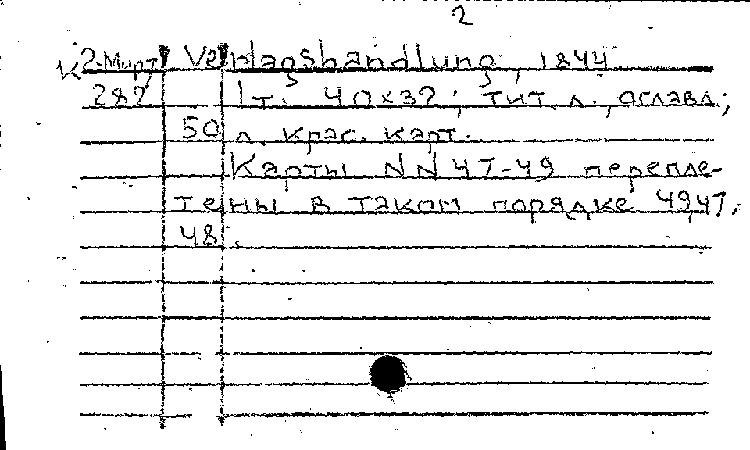 2
К 2-Мирт Verlagshandlung, 1844.
287 1 т. 40x32; тит. л., оглавл.;
50 л. крас. карт.
Карты NN 47-49 перепле-
тены в таком порядке 49,47,
48.